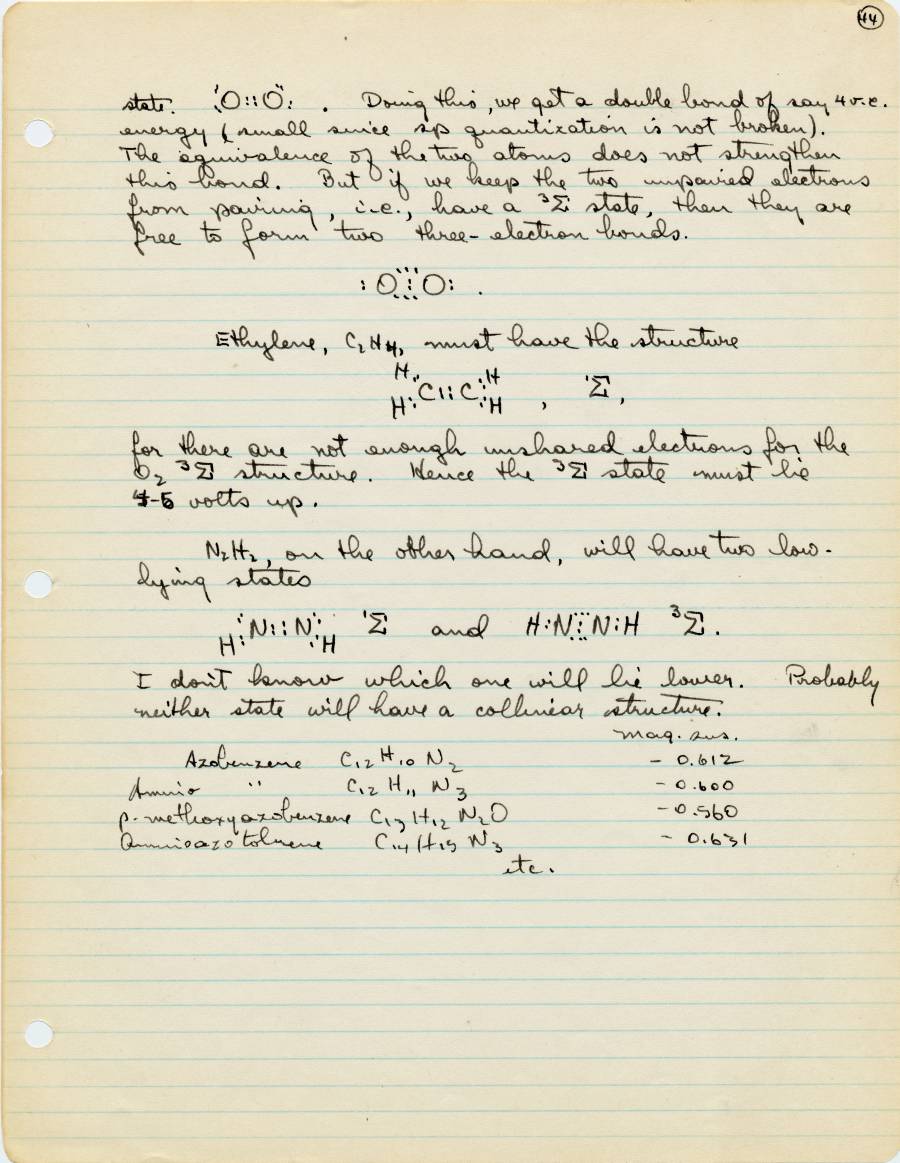 44
state. :Ö::Ö: . Doing this, we get a double bond of say 4 v.e.
energy (small since sp quantization is not broken).
The equivalence of the two atoms does not strengthen
this bond. But if we keep the two unpaired electrons
from pairing, i.e., have a ³Σ state, then they are
free to form two three-electron bonds.
:O⋮⋮⋮O: .
Ethylene, C₂H₄, must have the structure
H H
:C::C:
H H , ¹Σ,
for there are not enough unshared electrons for the
O₂ ³Σ structure. Hence the ³Σ state must lie
4-5 volts up.
N₂H₂, on the other hand, will have two low-
lying states
H:N::N:H ¹Σ and H:N⋮⋮⋮N:H ³Σ.
I don't know which one will lie lower. Probably
neither state will have a collinear structure.
mag. sus.
Azobenzene C₁₂H₁₀N₂ - 0.612
Amino " C₁₂H₁₁N₃ - 0.600
p-methoxyazobenzene C₁₃H₁₂N₂O - 0.560
Aminoazotoluene C₁₄H₁₅N₃ - 0.631
etc.